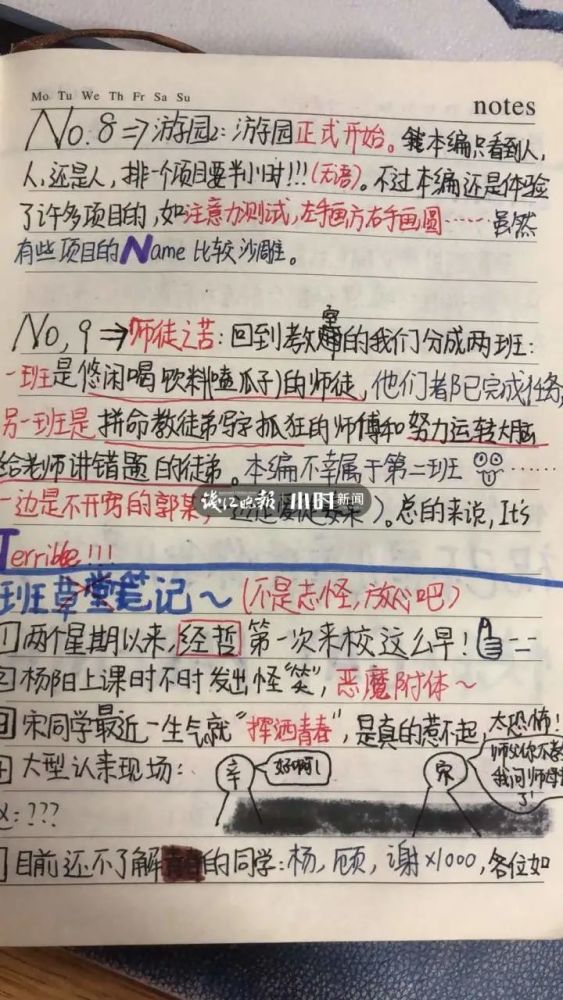 Mo Tu We Th Fr Sa Su
notes
No.8⇒游园2:游园正式开始。本编只看到人,
人,还是人,排一个项目要半小时!!!(无语)。不过本编还是体验
了许多项目的,如注意力测试,左手画方右手画圆……虽然
有些项目的Name比较沙雕。
No,9⇒师徒之苦:回到教室的我们分成两班:
一班是悠闲喝饮料(嗑瓜子)的师徒,他们都已完成任务,
另一班是拼命教徒弟写字抓狂的师傅和努力运转大脑
给老师讲错题的徒弟。本编不幸属于第二班……
一边是不开窍的郭某,)。总的来说,It's
Terrible!!!
钱江晚报 小时新闻
班草堂笔记~(不是志怪,放心吧)
1两个星期以来,经哲第一次来校这么早!
2杨阳上课时不时发出怪"笑",恶魔附体~
3宋同学最近一生气就"挥洒青春",是真的惹不起,太恐怖!
4大型认亲现场:
辛
好啊!
宋
师父你不教
我问师母
了!
:???
目前还不了解的同学:杨,顾,谢x1000,各位如